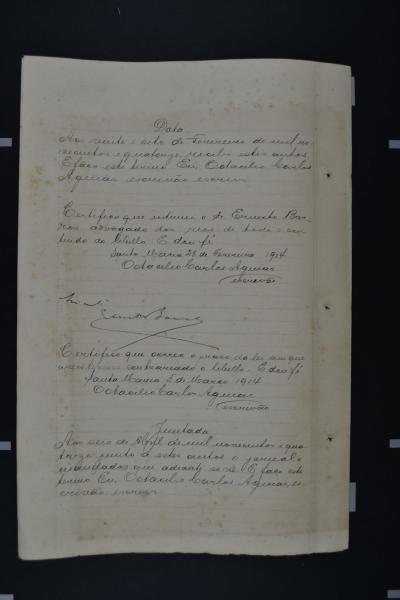 Data
Aos vinte e sete de Fevereiro de mil no-
vecentos e quatorze recebi estes autos
E faço este termo Eu, Octacilio Carlos
Aguiar escrivão escrevi
Certifico que intimei o Dr. Ernesto Bar-
ros advogado dos de todo o con-
teudo do libello. E dou fé
Santa Maria 28 de Fevereiro 1914
Octacilio Carlos Aguiar
escrivão
Certifico que correu o prazo da lei sem que
contrariado o libello. E dou fé
Santa Maria 5 de Março 1914
Octacilio Carlos Aguiar
escrivão
Juntada
Aos seis de Abril de mil novecentos e qua-
torze junto a estes autos o jornal e
mandados que adiante se vê. E faço este
termo Eu, Octacilio Carlos Aguiar, es-
crivão escrevi